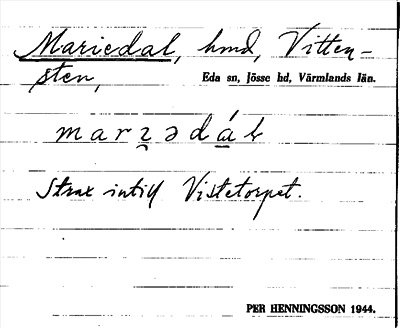 Mariedal, hmd, Vitten-
sten,
Eda sn, Jösse hd, Värmlands län.
Strax intill Vistetorpet.
PER HENNINGSSON 1944.